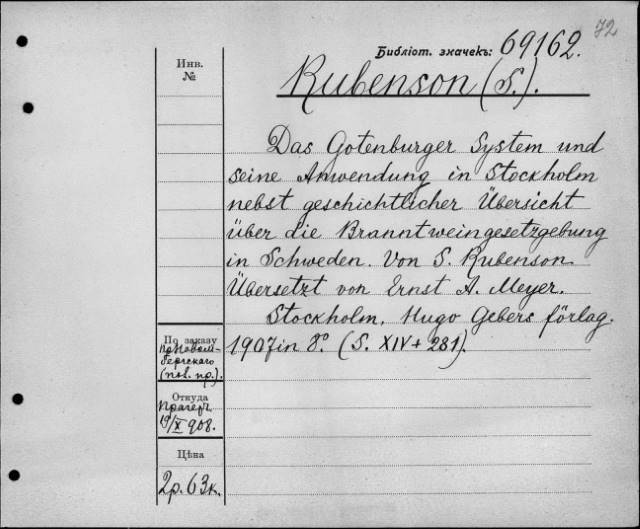 72
Библіот. значекъ: 69162.
Инв.
№
Rubenson (S.).
Das Gotenburger System und
seine Anwendung in Stockholm
nebst geschichtlicher Übersicht
über die Branntweingesetzgebung
in Schweden. Von S. Rubenson.
Übersetzt von Ernst A. Meyer.
Stockholm. Hugo Gebers förlag.
1907 in 8º. (S. XIV + 281).
По заказу
(пов. пр.).
Откуда
Прагеръ
19/X 908.
Цѣна
2 р. 63 к.